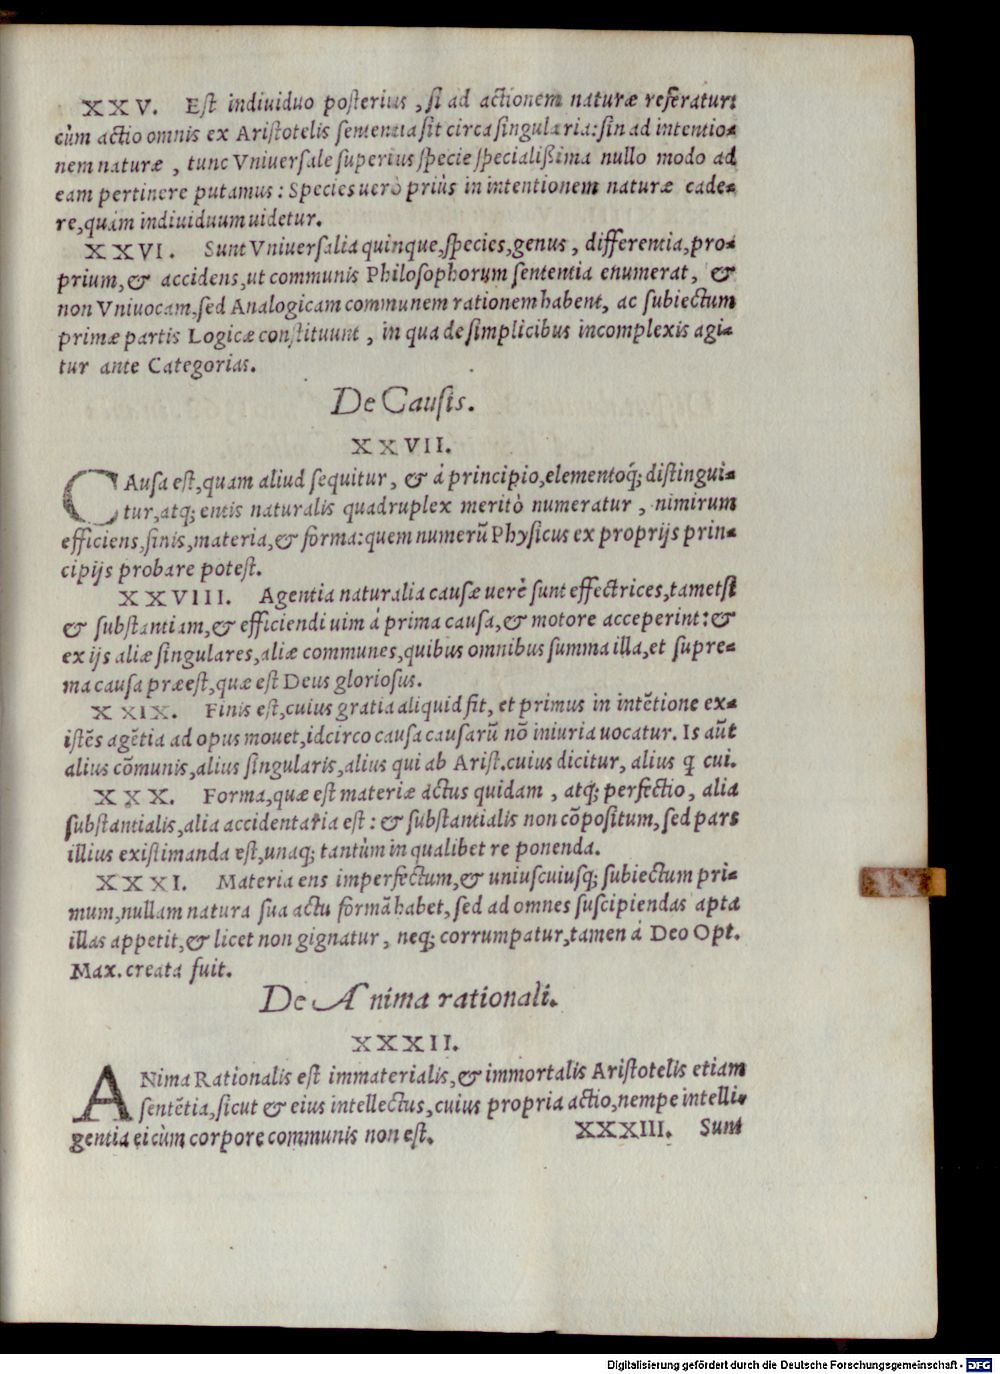 XXV. Est indiuiduo posterius, si ad actionem naturæ referatur:
cùm actio omnis ex Aristotelis sententia sit circa singularia: sin ad intentio-
nem naturæ, tunc Vniuersale superius specie specialißima nullo modo ad
eam pertinere putamus: Species uerò priùs in intentionem naturæ cade-
re, quàm indiuiduum uidetur.
XXVI. Sunt Vniuersalia quinque, species, genus, differentia, pro-
prium, & accidens, ut communis Philosophorum sententia enumerat, &
non Vniuocam, sed Analogicam communem rationem habent, ac subiectum
primæ partis Logicæ constituunt, in qua de simplicibus incomplexis agi-
tur ante Categorias.
De Causis.
XXVII.
CAusa est, quam aliud sequitur, & á principio, elementoq́; distingui-
tur, atq; entis naturalis quadruplex meritò numeratur, nimirum
efficiens, finis, materia, & forma: quem numerũ Physicus ex proprijs prin-
cipijs probare potest.
XXVIII. Agentia naturalia causæ uerè sunt effectrices, tametsi
& substantiam, & efficiendi uim á prima causa, & motore acceperint: &
ex ijs aliæ singulares, aliæ communes, quibus omnibus summa illa, et supre-
ma causa præest, quæ est Deus gloriosus.
XXIX. Finis est, cuius gratia aliquid fit, et primus in intẽtione ex-
istẽs agẽtia ad opus mouet, idcirco causa causarũ nõ iniuria uocatur. Is aũt
alius cõmunis, alius singularis, alius qui ab Arist. cuius dicitur, alius q cui.
XXX. Forma, quæ est materiæ actus quidam, atq; perfectio, alia
substantialis, alia accidentaria est: & substantialis non cõpositum, sed pars
illius existimanda est, unaq; tantùm in qualibet re ponenda.
XXXI. Materia ens imperfectum, & uniuscuiusq; subiectum pri-
mum, nullam natura sua actu formã habet, sed ad omnes suscipiendas apta
illas appetit, & licet non gignatur, neq; corrumpatur, tamen á Deo Opt.
Max. creata fuit.
De Anima rationali.
XXXII.
ANima Rationalis est immaterialis, & immortalis Aristotelis etiam
sentẽtia, sicut & eius intellectus, cuius propria actio, nempe intelli-
gentia ei cùm corpore communis non est.
XXXIII. Sunt
Digitalisierung gefördert durch die Deutsche Forschungsgemeinschaft - DFG